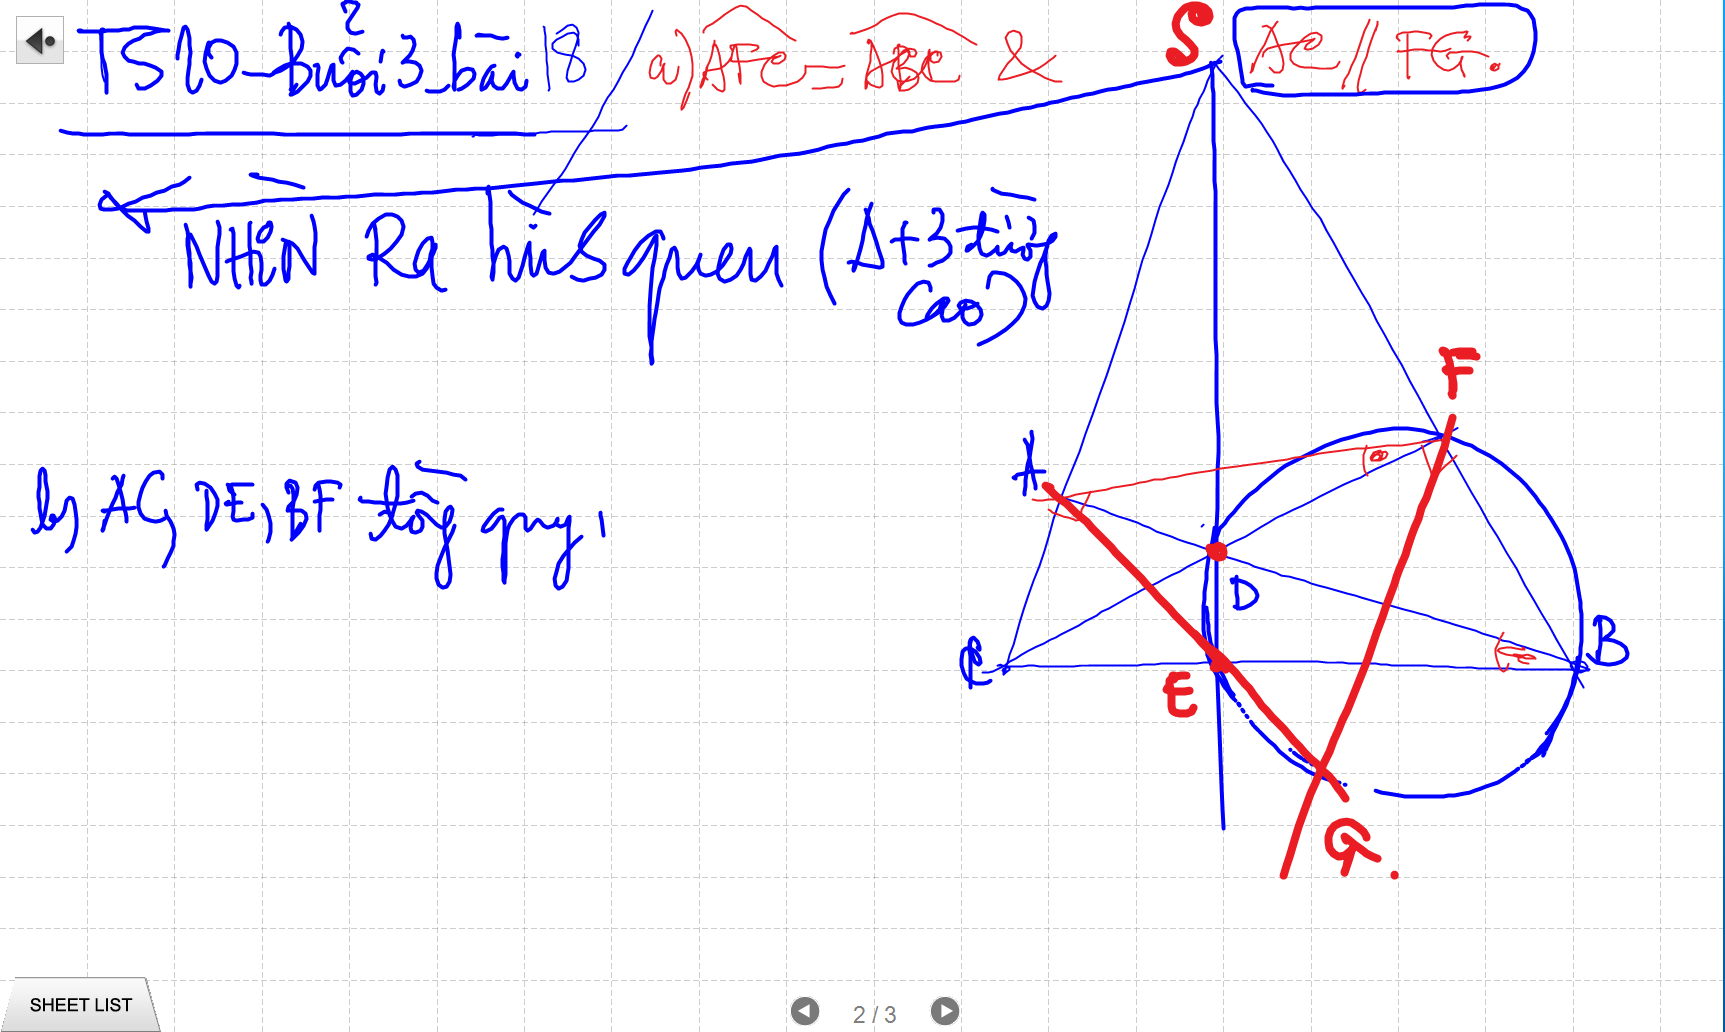 TS10_Buổi 3_bài 18
a) AFC = ABC &
AC // FG.
NHìN Ra hình quen (Δ + 3 đường
cao)
b, AC, DE, BF đồng quy.
S
F
A
D
C
B
E
G.
SHEET LIST
2 / 3